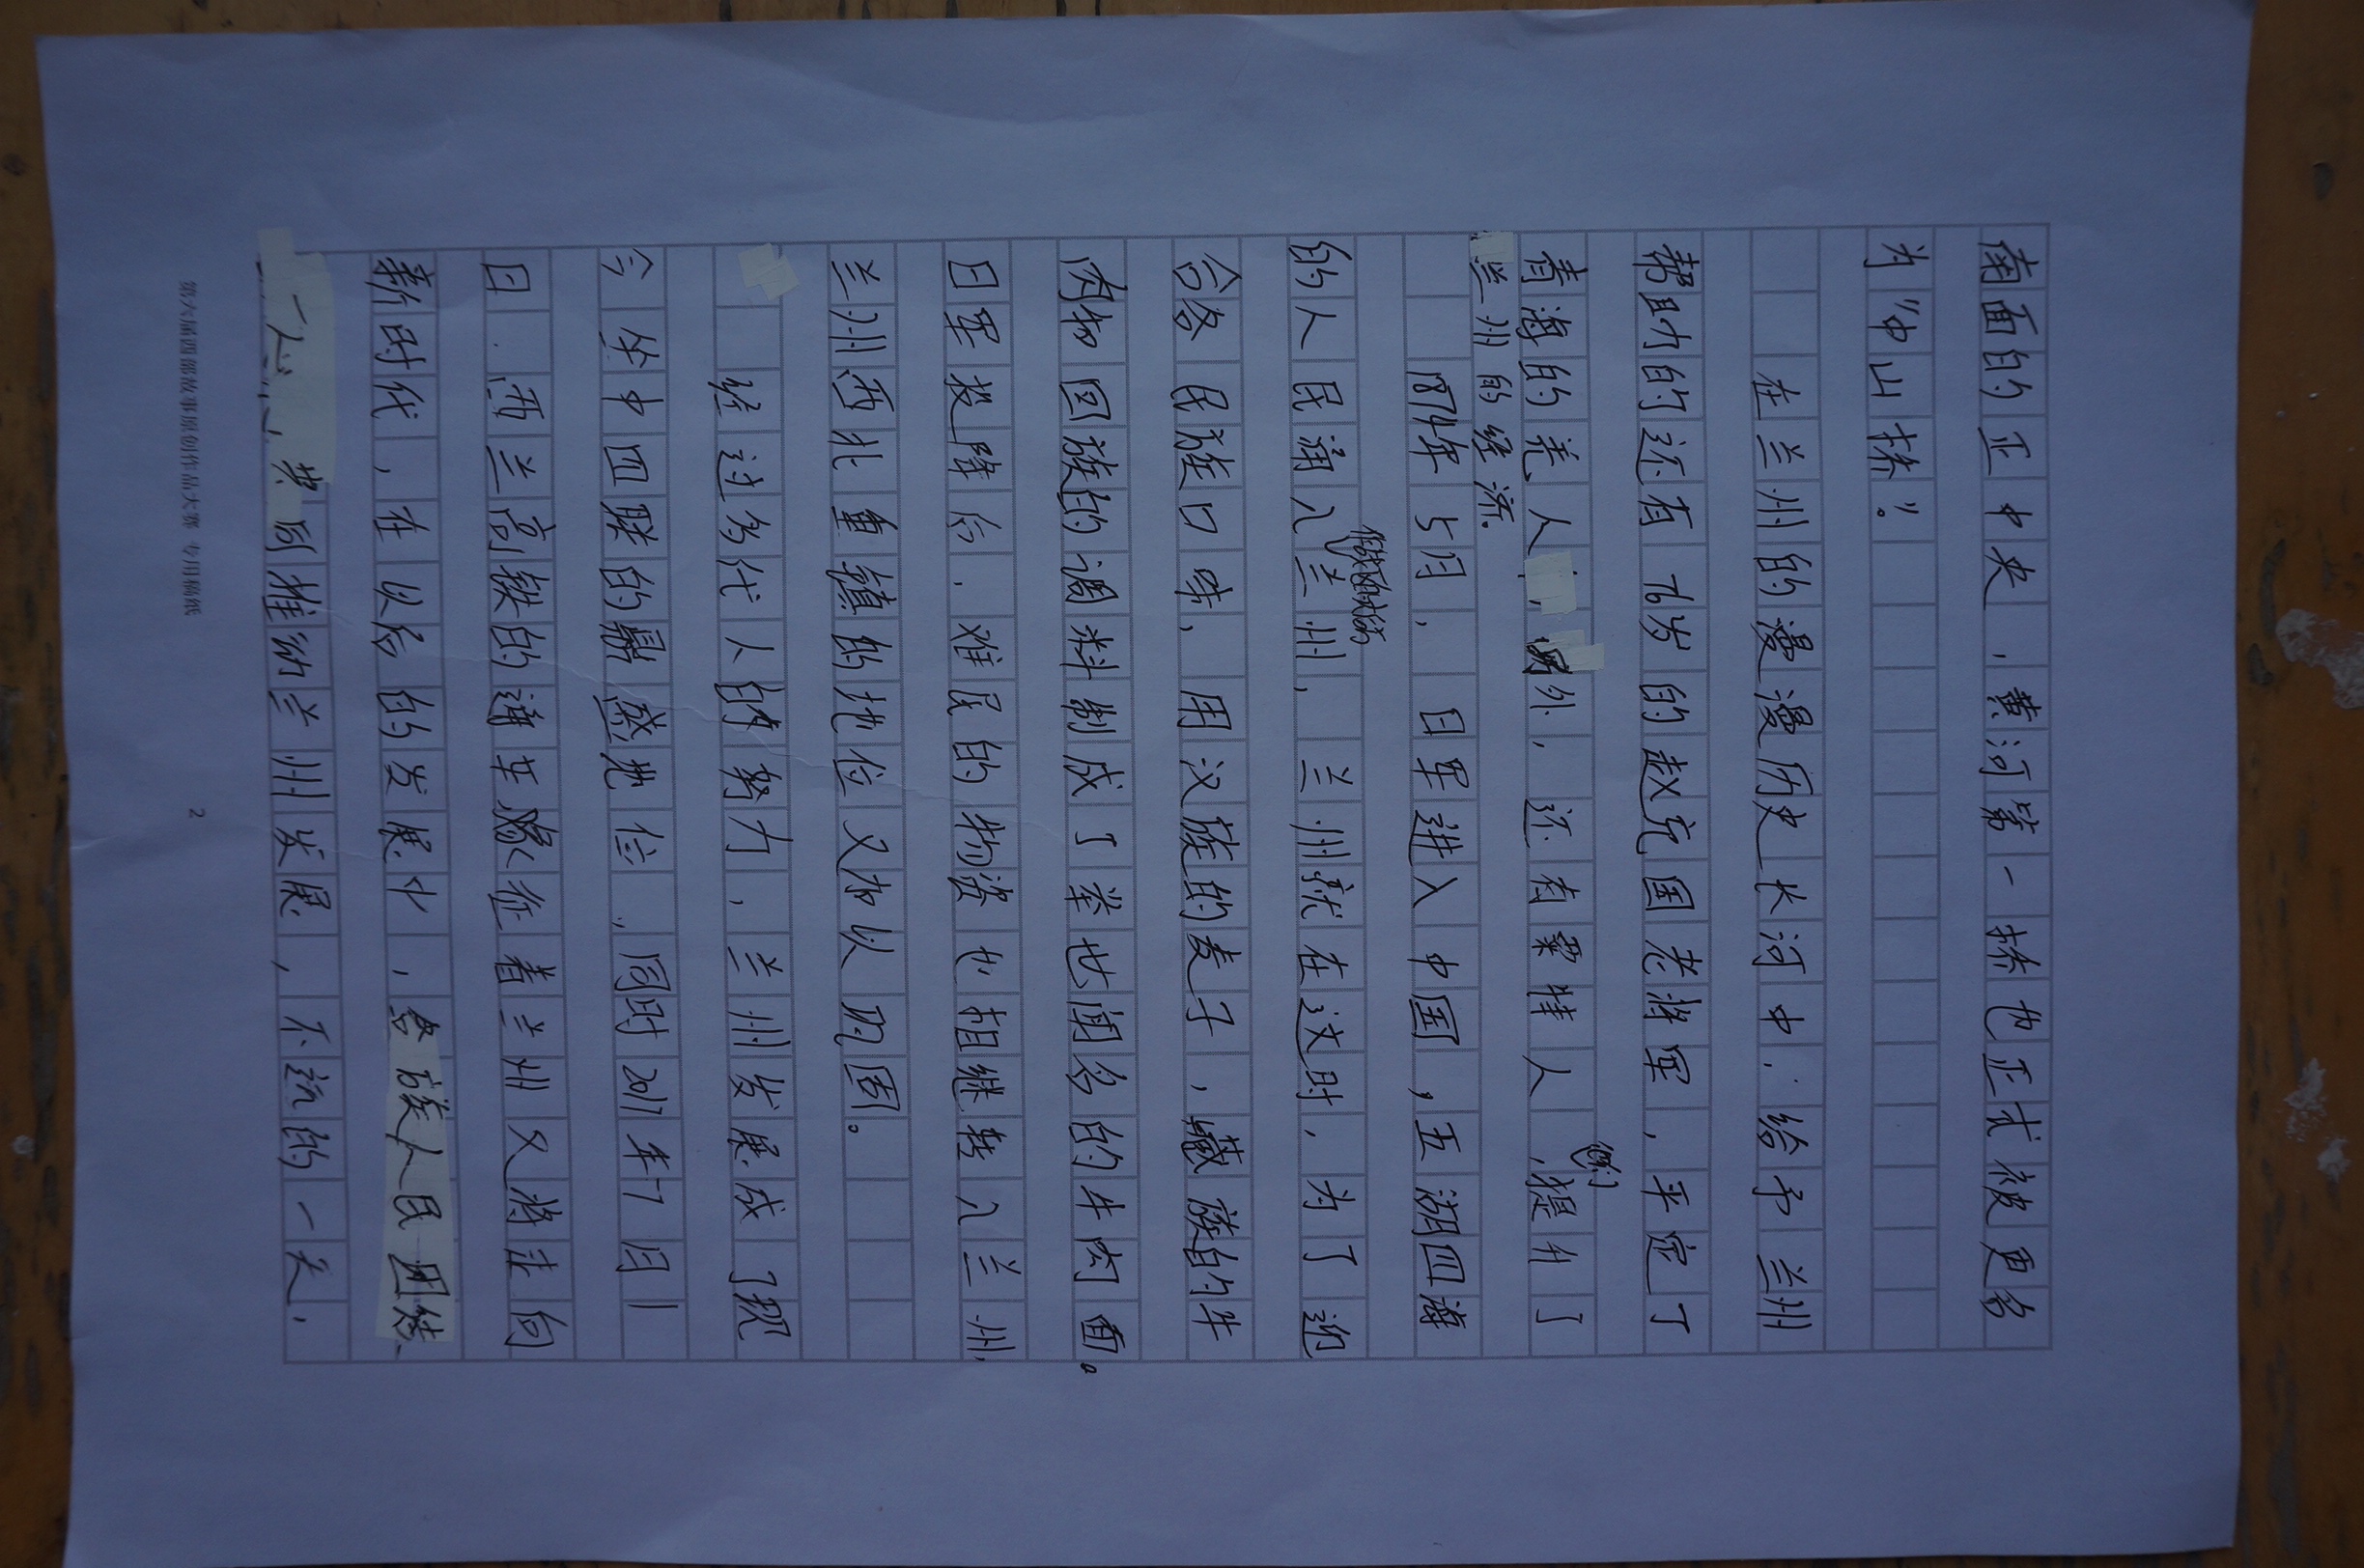 南面的正中央，黄河第一桥也正式被更名
为“中山桥”。
在兰州的漫漫历史长河中，给予兰州
帮助的还有76岁的赵充国老将军，平定了
青海的羌人，另外，还有粟特人，提升了
兰州的经济。
1874年5月，日军进入中国，五湖四海
的人民涌入兰州，兰州就在这时，为了迎
合各民族口味，用汉族的麦子，藏族的牛
肉和回族的调料制成了举世闻名的牛肉面。
日军投降后，难民的物资也相继转入兰州，
兰州西北重镇的地位又加以巩固。
经过多代人的努力，兰州发展成了现
今坐中四联的鼎盛地位，同时2017年7月1
日，西兰高铁的通车象征着兰州又将走向
新时代，在以后的发展中，各族人民团结
一心，共同推动兰州发展，不朽的一天，
第六届西部故事原创作品大赛 专用稿纸
2